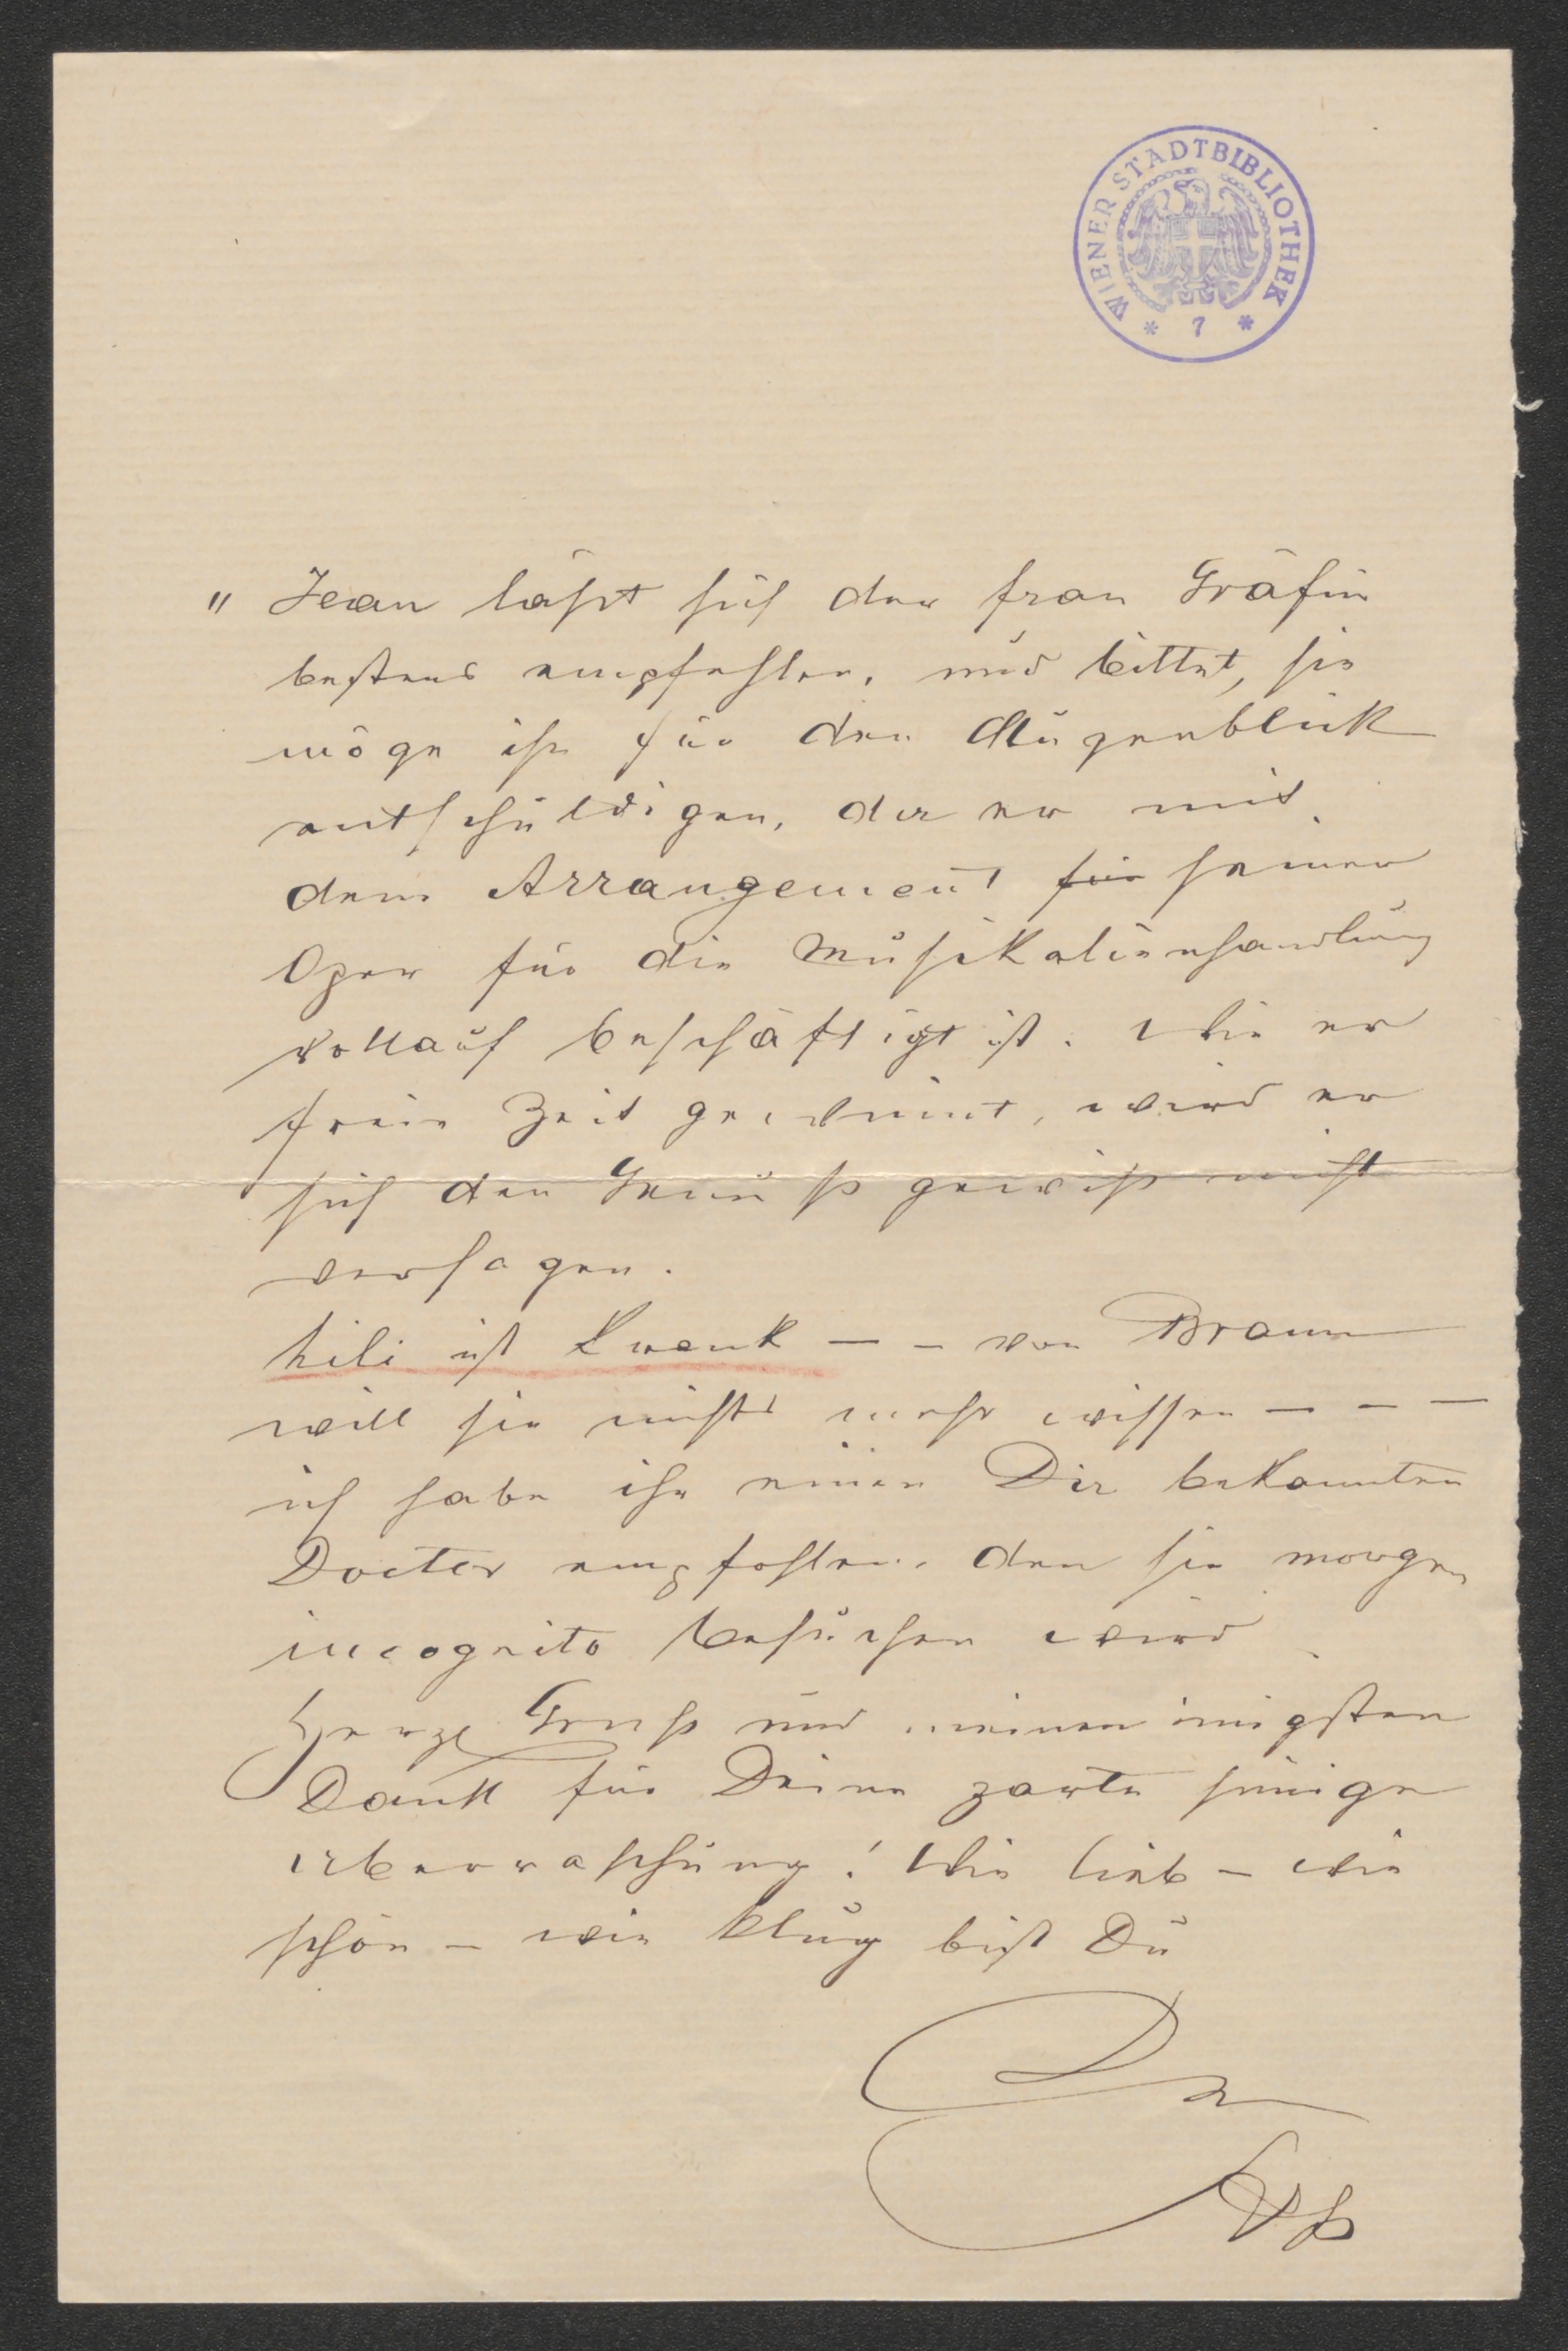 WIENER STADTBIBLIOTHEK
* 7 *
" Jean läßt sich der Frau Gräfin
bestens empfehlen, und bittet, sie
möge ihn für den Augenblick
entschuldigen, da er mit
dem Arrangement für seiner
Oper für die Musikalienhandlung
vollauf beschäftigt ist. Wie er
freie Zeit gewinnt, wird er
sich den Genuß gewiß nicht
versagen.
Lili ist krank — – von Braun
will sie nichts mehr wissen — – —
ich habe ihr einen Dir bekannten
Doctor empfohlen, den sie morgen
incognito besuchen wird
Herzl Gruß und meinen innigsten
Dank für Deine zarte sinnige
Überraschung! Wie lieb – wie
schön – wie klug bist Du